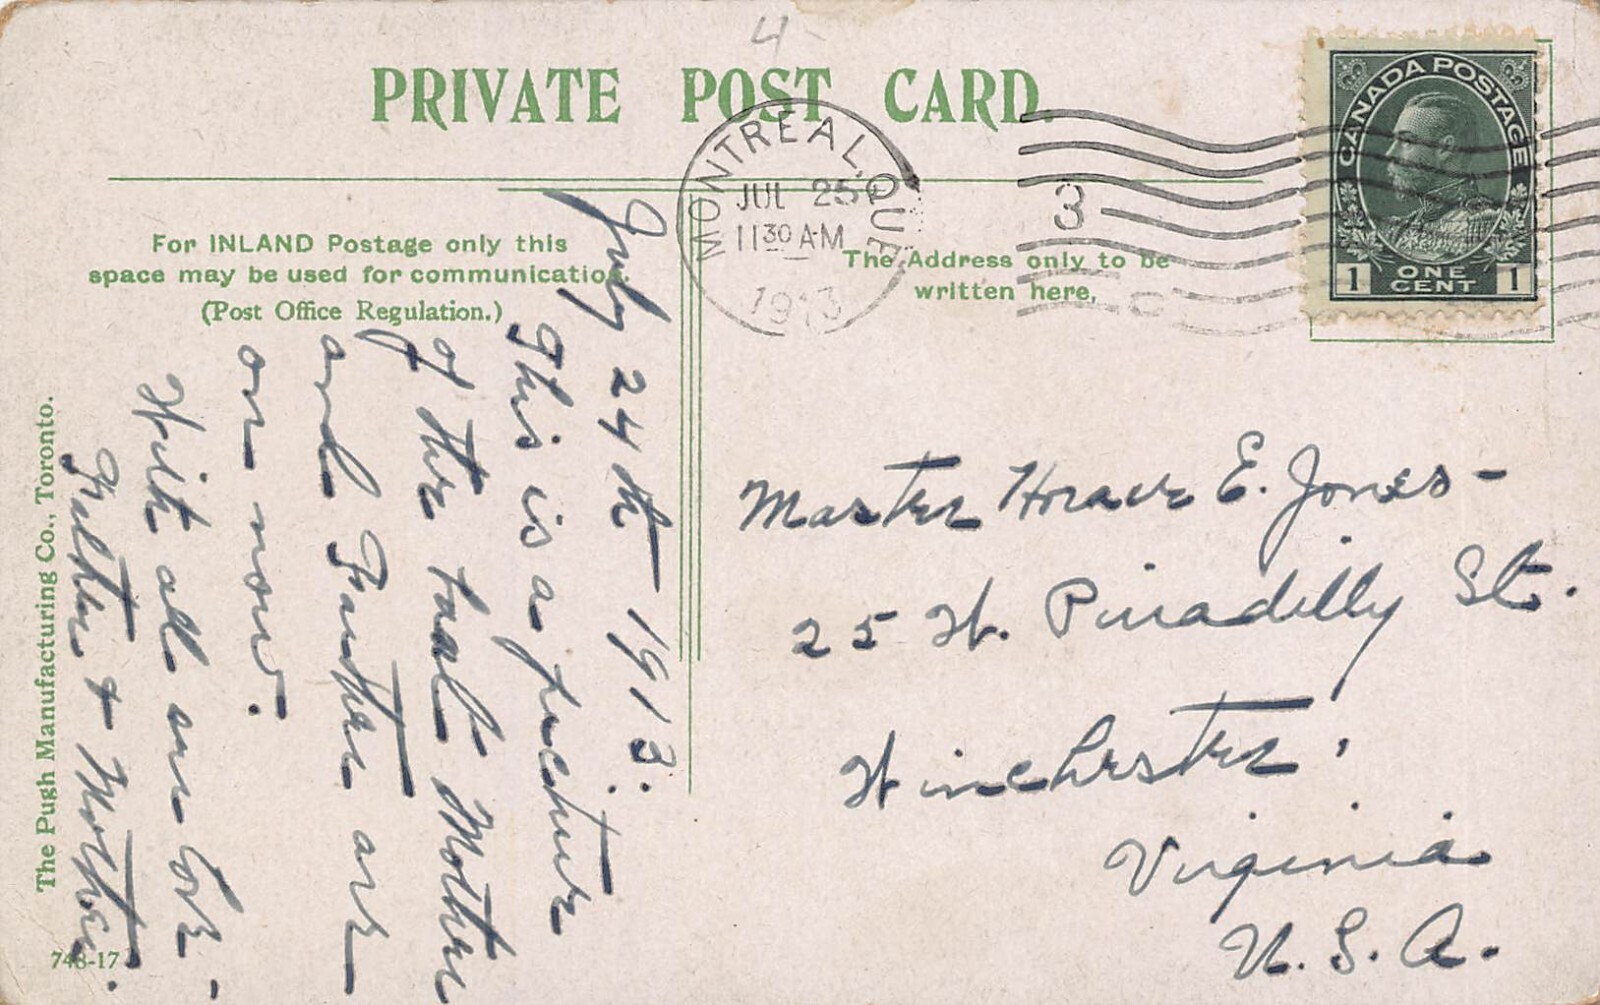 4-
PRIVATE POST CARD.
MONTREAL, QUE
JUL 25
11 30 AM
1913
3
C
CANADA POSTAGE
1 ONE CENT 1
For INLAND Postage only this
space may be used for communication.
(Post Office Regulation.)
The Address only to be
written here.
July 24th 1913.
This is a picture
of the boat Mother
and Father are
on now.
With all our love -
Father & Mother.
Master Horace E. Jones -
25 W. Piccadilly St.
Winchester,
Virginia
U. S. A.
The Pugh Manufacturing Co., Toronto.
748-17